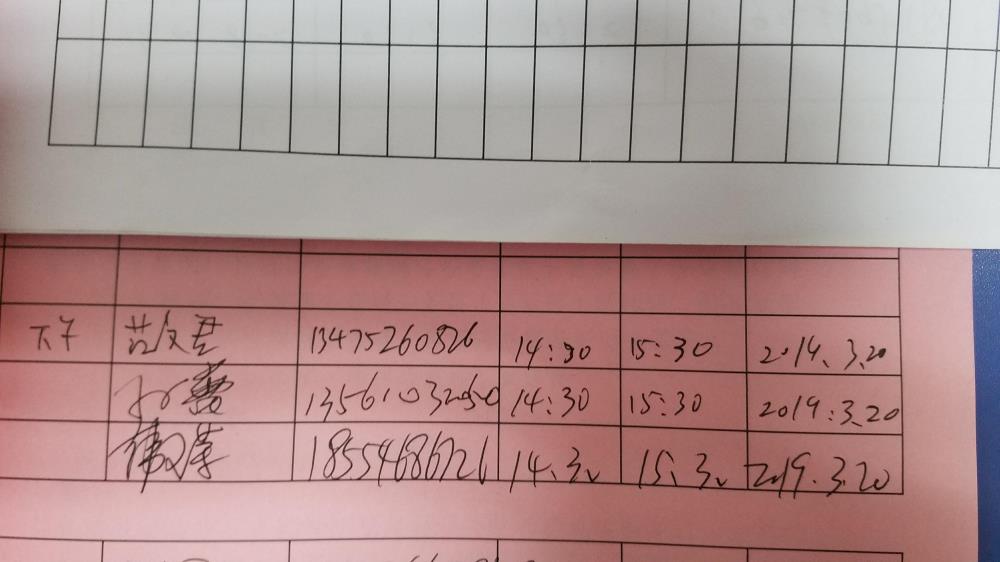 下午 范文君 13475260826 14:30 15:30 2019.3.20
13561032050 14:30 15:30 2019.3.20
18554686726 14.30 15.30 2019.3.20